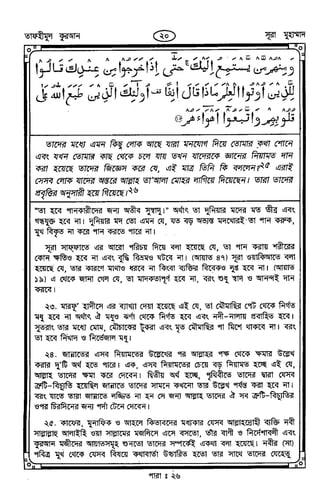 তাফহীমুল কুরআন
২০
সূরা মুহাম্মাদ
وَمِنْهُمْ مَّنْ يَّسْتَمِعُ اِلَيْكَ ۚ حَتّٰۤى اِذَا خَرَجُوْا مِنْ عِنْدِكَ قَالُوْا
لِلَّذِيْنَ اُوْتُوا الْعِلْمَ مَاذَا قَالَ اٰنِفًا ۫ اُولٰٓئِكَ الَّذِيْنَ طَبَعَ اللّٰهُ عَلٰى
قُلُوْبِهِمْ وَاتَّبَعُوْۤا اَهْوَآءَهُمْ
তাদের মধ্যে এমন কিছু লোক আছে যারা মনযোগ দিয়ে তোমার কথা শোনে
এবং যখন তোমার কাছ থেকে চলে যায় তখন যাদেরকে জ্ঞানের নিয়ামত দান
করা হয়েছে তাদের জিজ্ঞেস করে যে, এই মাত্র তিনি কি বললেন?২৫ এরাই
সেসব লোক যাদের অন্তরে আল্লাহ তা'আলা মোহর লাগিয়ে দিয়েছেন। তারা তাদের
প্রবৃত্তির অনুসারী হয়ে গিয়েছে।২৬
"তা হবে পানকারীদের জন্য অতীব সুস্বাদু।" অর্থাৎ তা দুনিয়ার মদের মত তীব্র এবং
গন্ধযুক্ত হবে না। দুনিয়ার মদ তো এমন যে, যত বড় অভ্যস্ত মদখোরই তা পান করুক,
মুখ বিকৃত না করে পান করতে পারে না।
সূরা সাফ্‌ফাতে এর আরো পরিচয় দিয়ে বলা হয়েছে যে, তা পান করায় শরীরের
কোন ক্ষতিও হবে না এবং বুদ্ধি বিভ্রমও ঘটবে না। (আয়াত ৪৭) সূরা ওয়াকিআতে বলা
হয়েছে যে, তার কারণে মাথাও ধরবে না কিংবা ব্যক্তির বিবেকও লুপ্ত হবে না। (আয়াত
১৯) এ থেকে জানা গেল যে, তা মাদকতাপূর্ণ হবে না, বরং শুধু স্বাদ ও আনন্দই দান
করবে।
২৩. মারফূ' হাদীসে এর ব্যাখ্যা দেয়া হয়েছে এই যে, তা মৌমাছির পেট থেকে নির্গত
মধু হবে না অর্থাৎ ঐ মধুও ঝর্ণা থেকে নির্গত হবে এবং নদী-নালায় প্রবাহিত হবে।
সুতরাং তার মধ্যে মোম, মৌচাকের টুকরা এবং মৃত মৌমাছির পা মিশে থাকবে না। বরং
তা হবে নিখাদ ও নির্ভেজাল মধু।
২৪. জান্নাতের এসব নিয়ামতের উল্লেখের পর আল্লাহর পক্ষ থেকে ক্ষমার উল্লেখ
করার দু'টি অর্থ হতে পারে। এক, এসব নিয়ামতের চেয়ে বড় নিয়ামত হচ্ছে এই যে,
আল্লাহ তাদের ক্ষমা করে দেবেন। দ্বিতীয় অর্থ হচ্ছে, পৃথিবীতে তাদের দ্বারা যেসব
ত্রুটি-বিচ্যুতি হয়েছিল জান্নাতে তাদের সামনে কখনো তার উল্লেখ পর্যন্ত করা হবে না।
বরং যাতে তারা জান্নাতে লজ্জিত না হন সে জন্য আল্লাহ তাদের ঐ সব ত্রুটি-বিচ্যুতির
ওপর চিরদিনের জন্য পর্দা টেনে দেবেন।
২৫. কাফের, মুনাফিক ও আহলে কিতাবদের মধ্যকার যেসব আল্লাহদ্রোহী ব্যক্তি নবী
সাল্লাল্লাহু আলাইহি ওয়া সাল্লামের মজলিসে এসে বসতো, তাঁর বাণী ও নির্দেশাবলী এবং
কুরআন মজীদের আয়াতসমূহ শুনতো তাদের সম্পর্কেই একথা বলা হয়েছে। নবীর (সা)
পবিত্র মুখ থেকে যেসব বিষয়ে কথাবার্তা উচ্চারিত হতো তার সাথে তাদের যেহেতু
পারা : ২৬